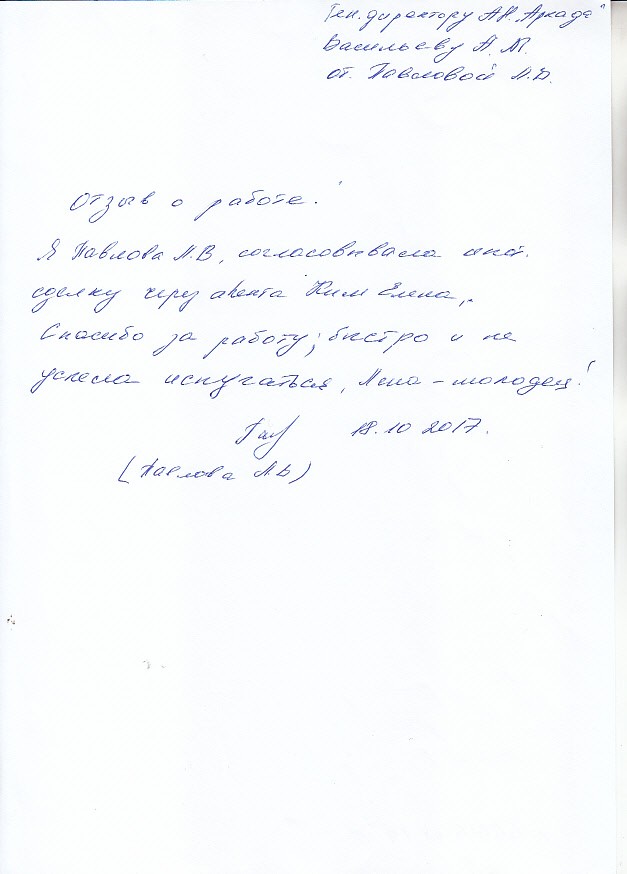 Ген. директору АН "Аркада"
Васильеву А. М.
от Павловой Л.В.
Отзыв о работе.
Я Павлова Л.В, согласовывала
сделку через агента Ким Елена,
Спасибо за работу; быстро и не
успела испугаться, Лена - молодец!
18.10 2017.
(Павлова Л.В)